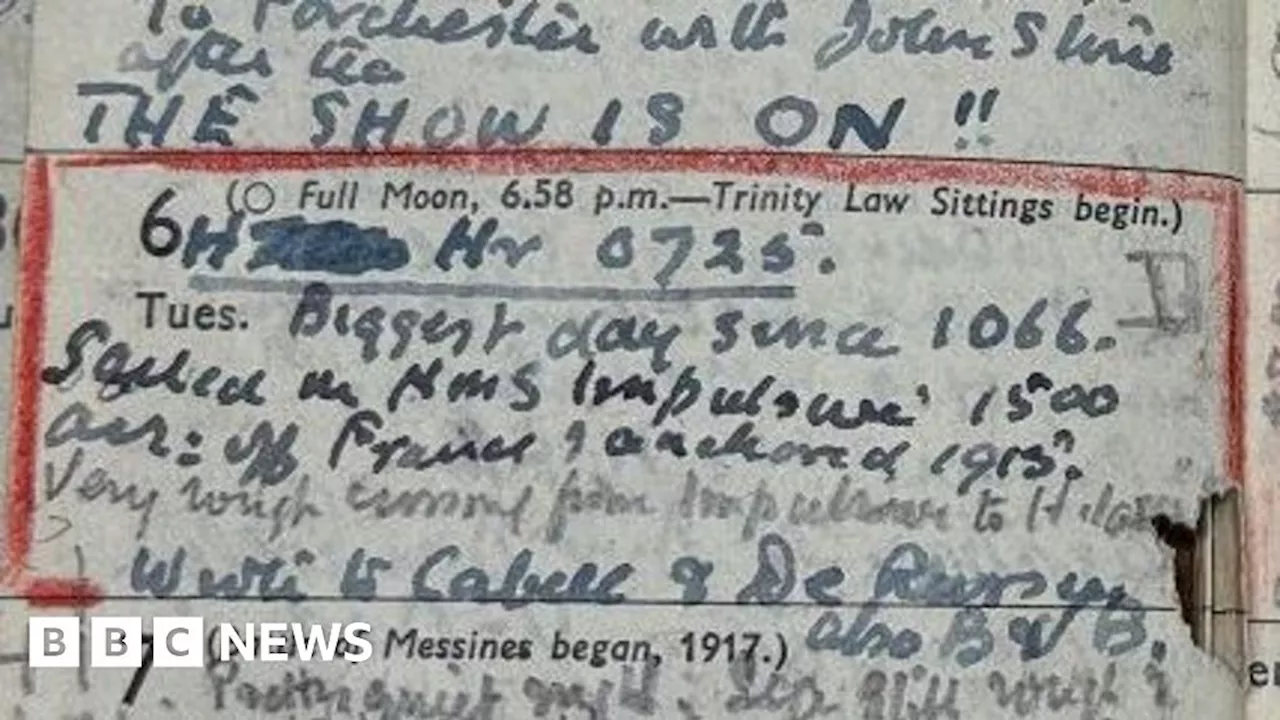 To Porchester with John S
after tea
THE SHOW IS ON !!
(○ Full Moon, 6.58 p.m.—Trinity Law Sittings begin.)
6 H Hr 0725.
D
Tues. Biggest day since 1066.
Sailed in HMS Impulsive 1500
arr: off France & anchored 1915.
Very rough crossing from Impulsive to H
Wrote to Cabell & De
also B & B.
BBC NEWS
7 Messines began, 1917.)
quiet night. Sea still rough &